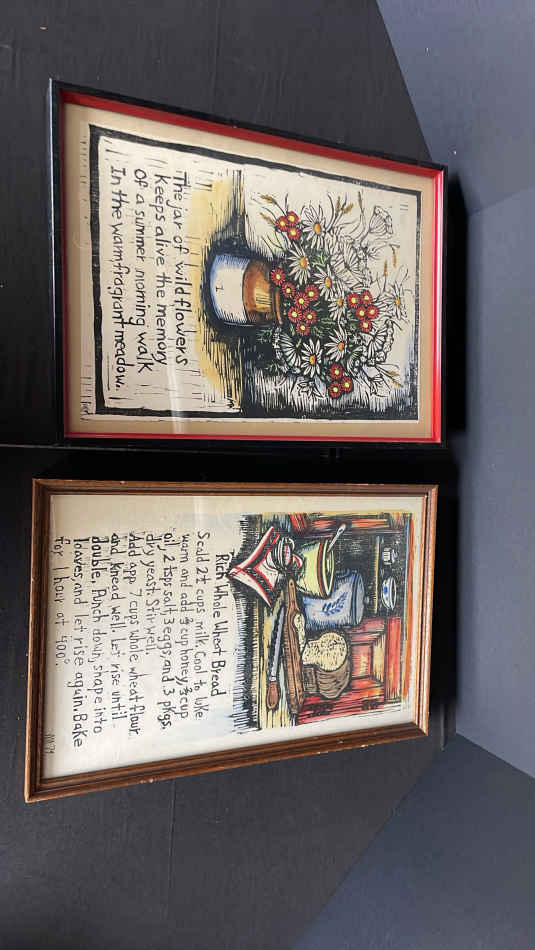 The jar of wildflowers
Keeps alive the memory
Of a summer morning walk
In the warm fragrant meadow.
Rich Whole Wheat Bread
Scald 2½ cups milk. Cool to luke
warm and add ¾ cup honey, ¾ cup
oil, 2 tbps salt 3 eggs, and 3 pkgs.
dry yeast. Stir well.
Add app. 7 cups whole wheat flour.
and knead well. Let rise until
double. Punch down, shape into
loaves, and let rise again. Bake
for 1 hour at 400°